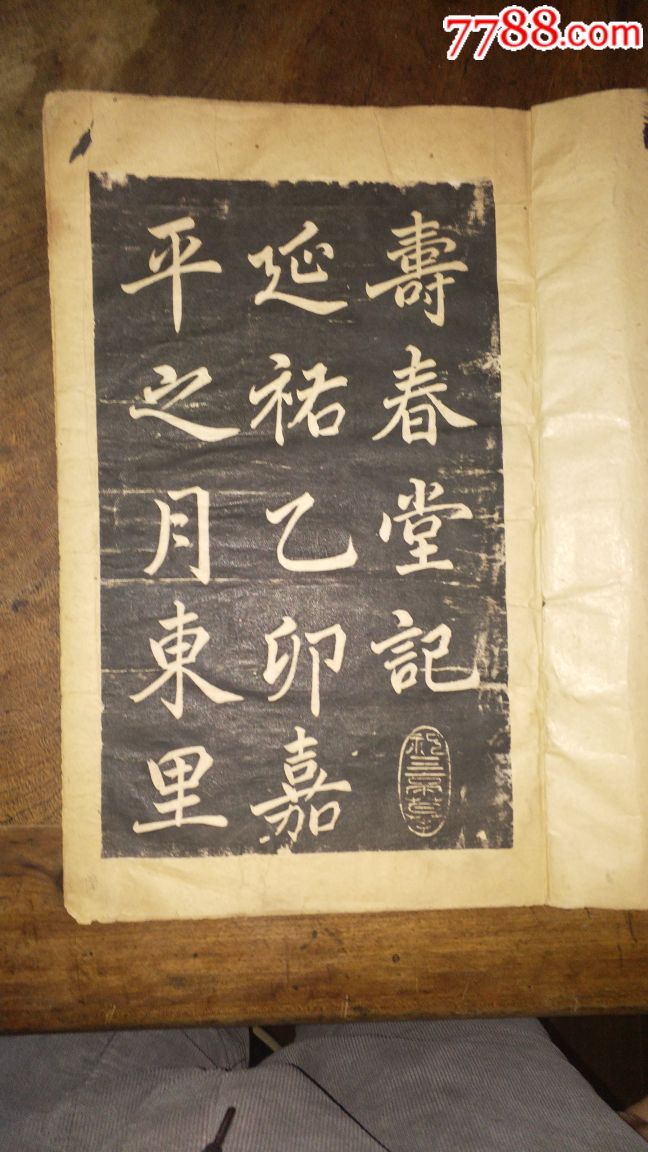 7788.com
壽春堂記
延祐乙卯嘉
平之月東里